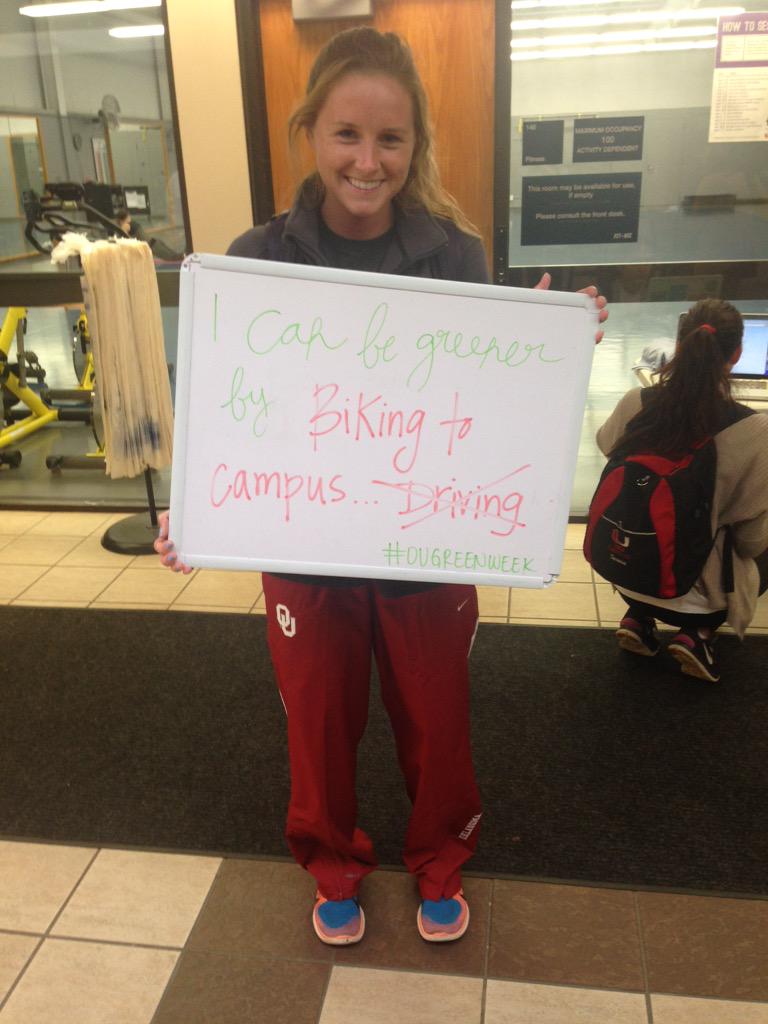 HOW TO
140
Fitness
MAXIMUM OCCUPANCY
100
ACTIVITY DEPENDENT
This room may be available for use,
if empty
Please consult the front desk.
I can be greener
by Biking to
campus... Driving
#OUGREENWEEK
OU
OKLAHOMA
U